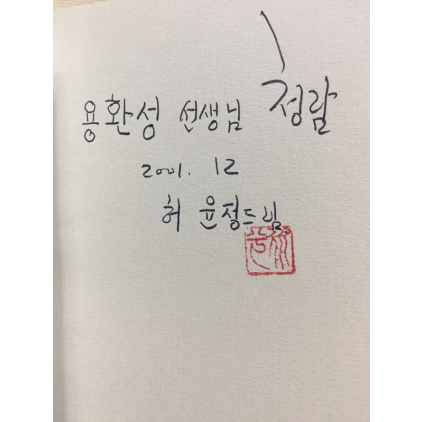 용환성 선생님 청람
2001. 12
허윤정드림